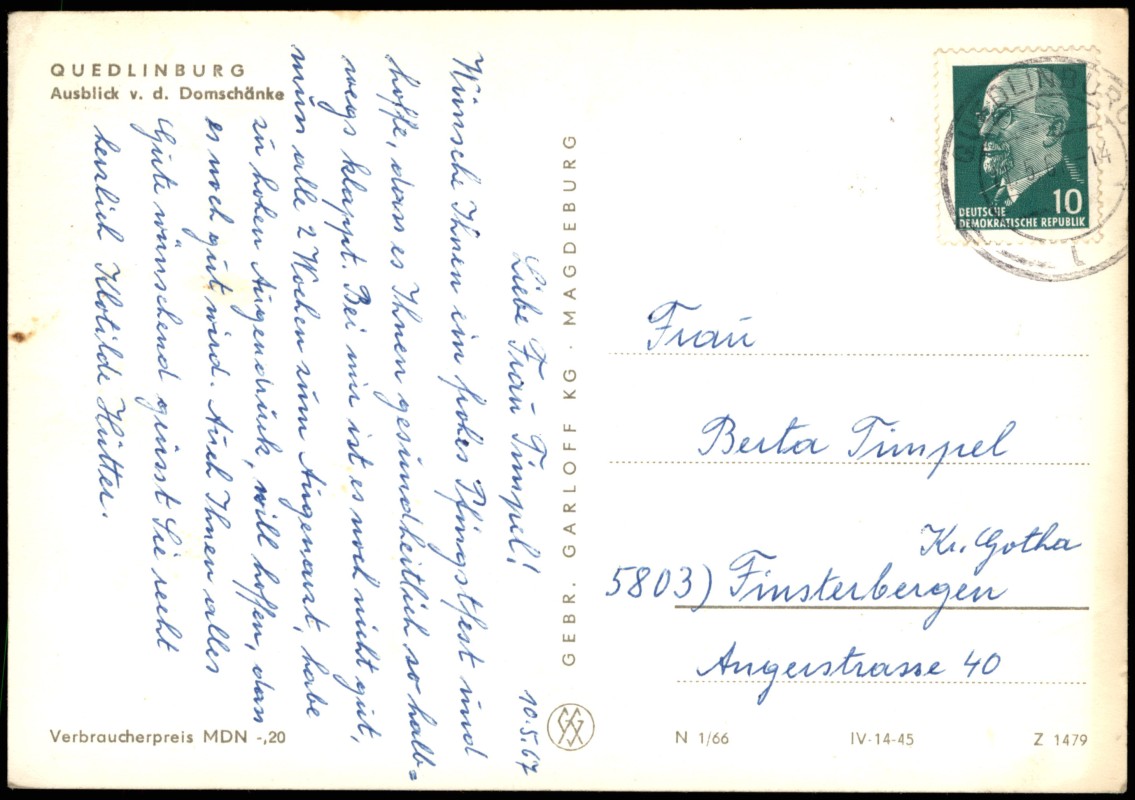 QUEDLINBURG
Ausblick v. d. Domschänke
10.5.67
Liebe Frau Timpel!
Wünsche Ihnen ein frohes Pfingstfest und
hoffe, dass es Ihnen gesundheitlich so halb=
wegs klappt. Bei mir ist es noch nicht gut,
muss alle 2 Wochen zum Augenarzt, habe
zu hohen Augendruck, will hoffen, dass
es noch gut wird. Auch Ihnen alles
Gute wünschend grüsst Sie recht
herzlich Klotilde Hütter.
Verbraucherpreis MDN -,20
GEBR. GARLOFF KG · MAGDEBURG
QUEDLINBURG
DEUTSCHE
DEMOKRATISCHE REPUBLIK
10
Frau
Berta Timpel
Kr. Gotha
5803) Finsterbergen
Angerstrasse 40
N 1/66
IV-14-45
Z 1479